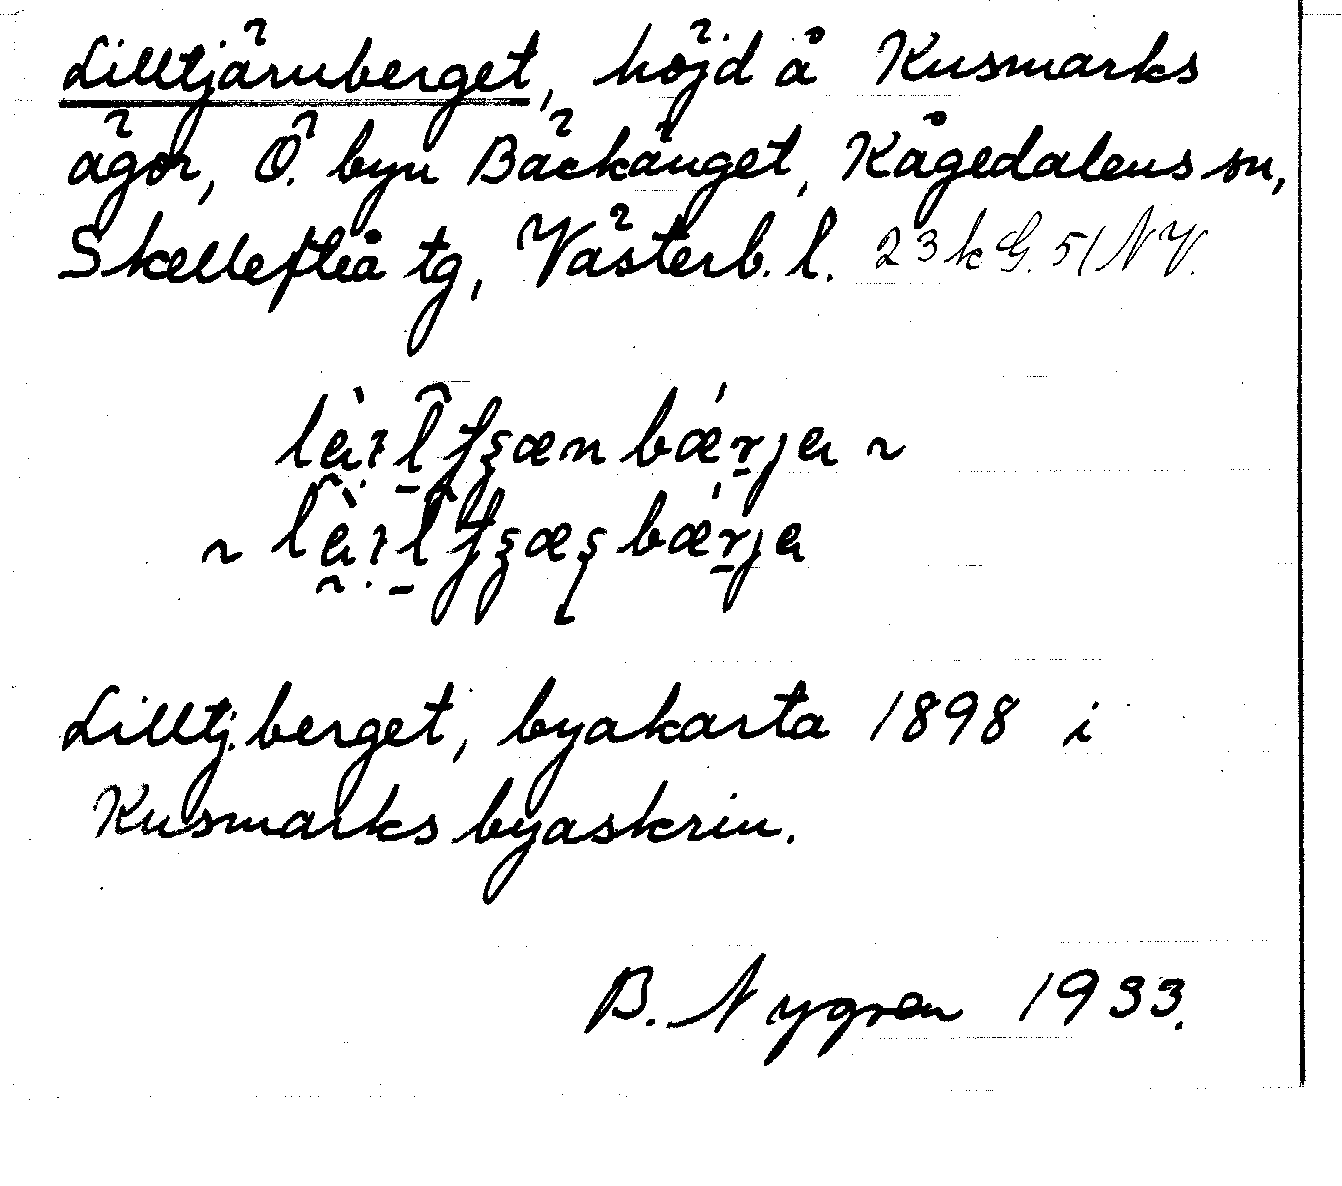 Lilltjärnberget, höjd å Kusmarks
ägor, Ö. byn Bäckänget, Kågedalens sn,
Skellefteå tg, Västerb. l. 23 k G. 51 NV.
Lilltj.berget, byakarta 1898 i
Kusmarks byaskrin.
B. Nygren 1933.